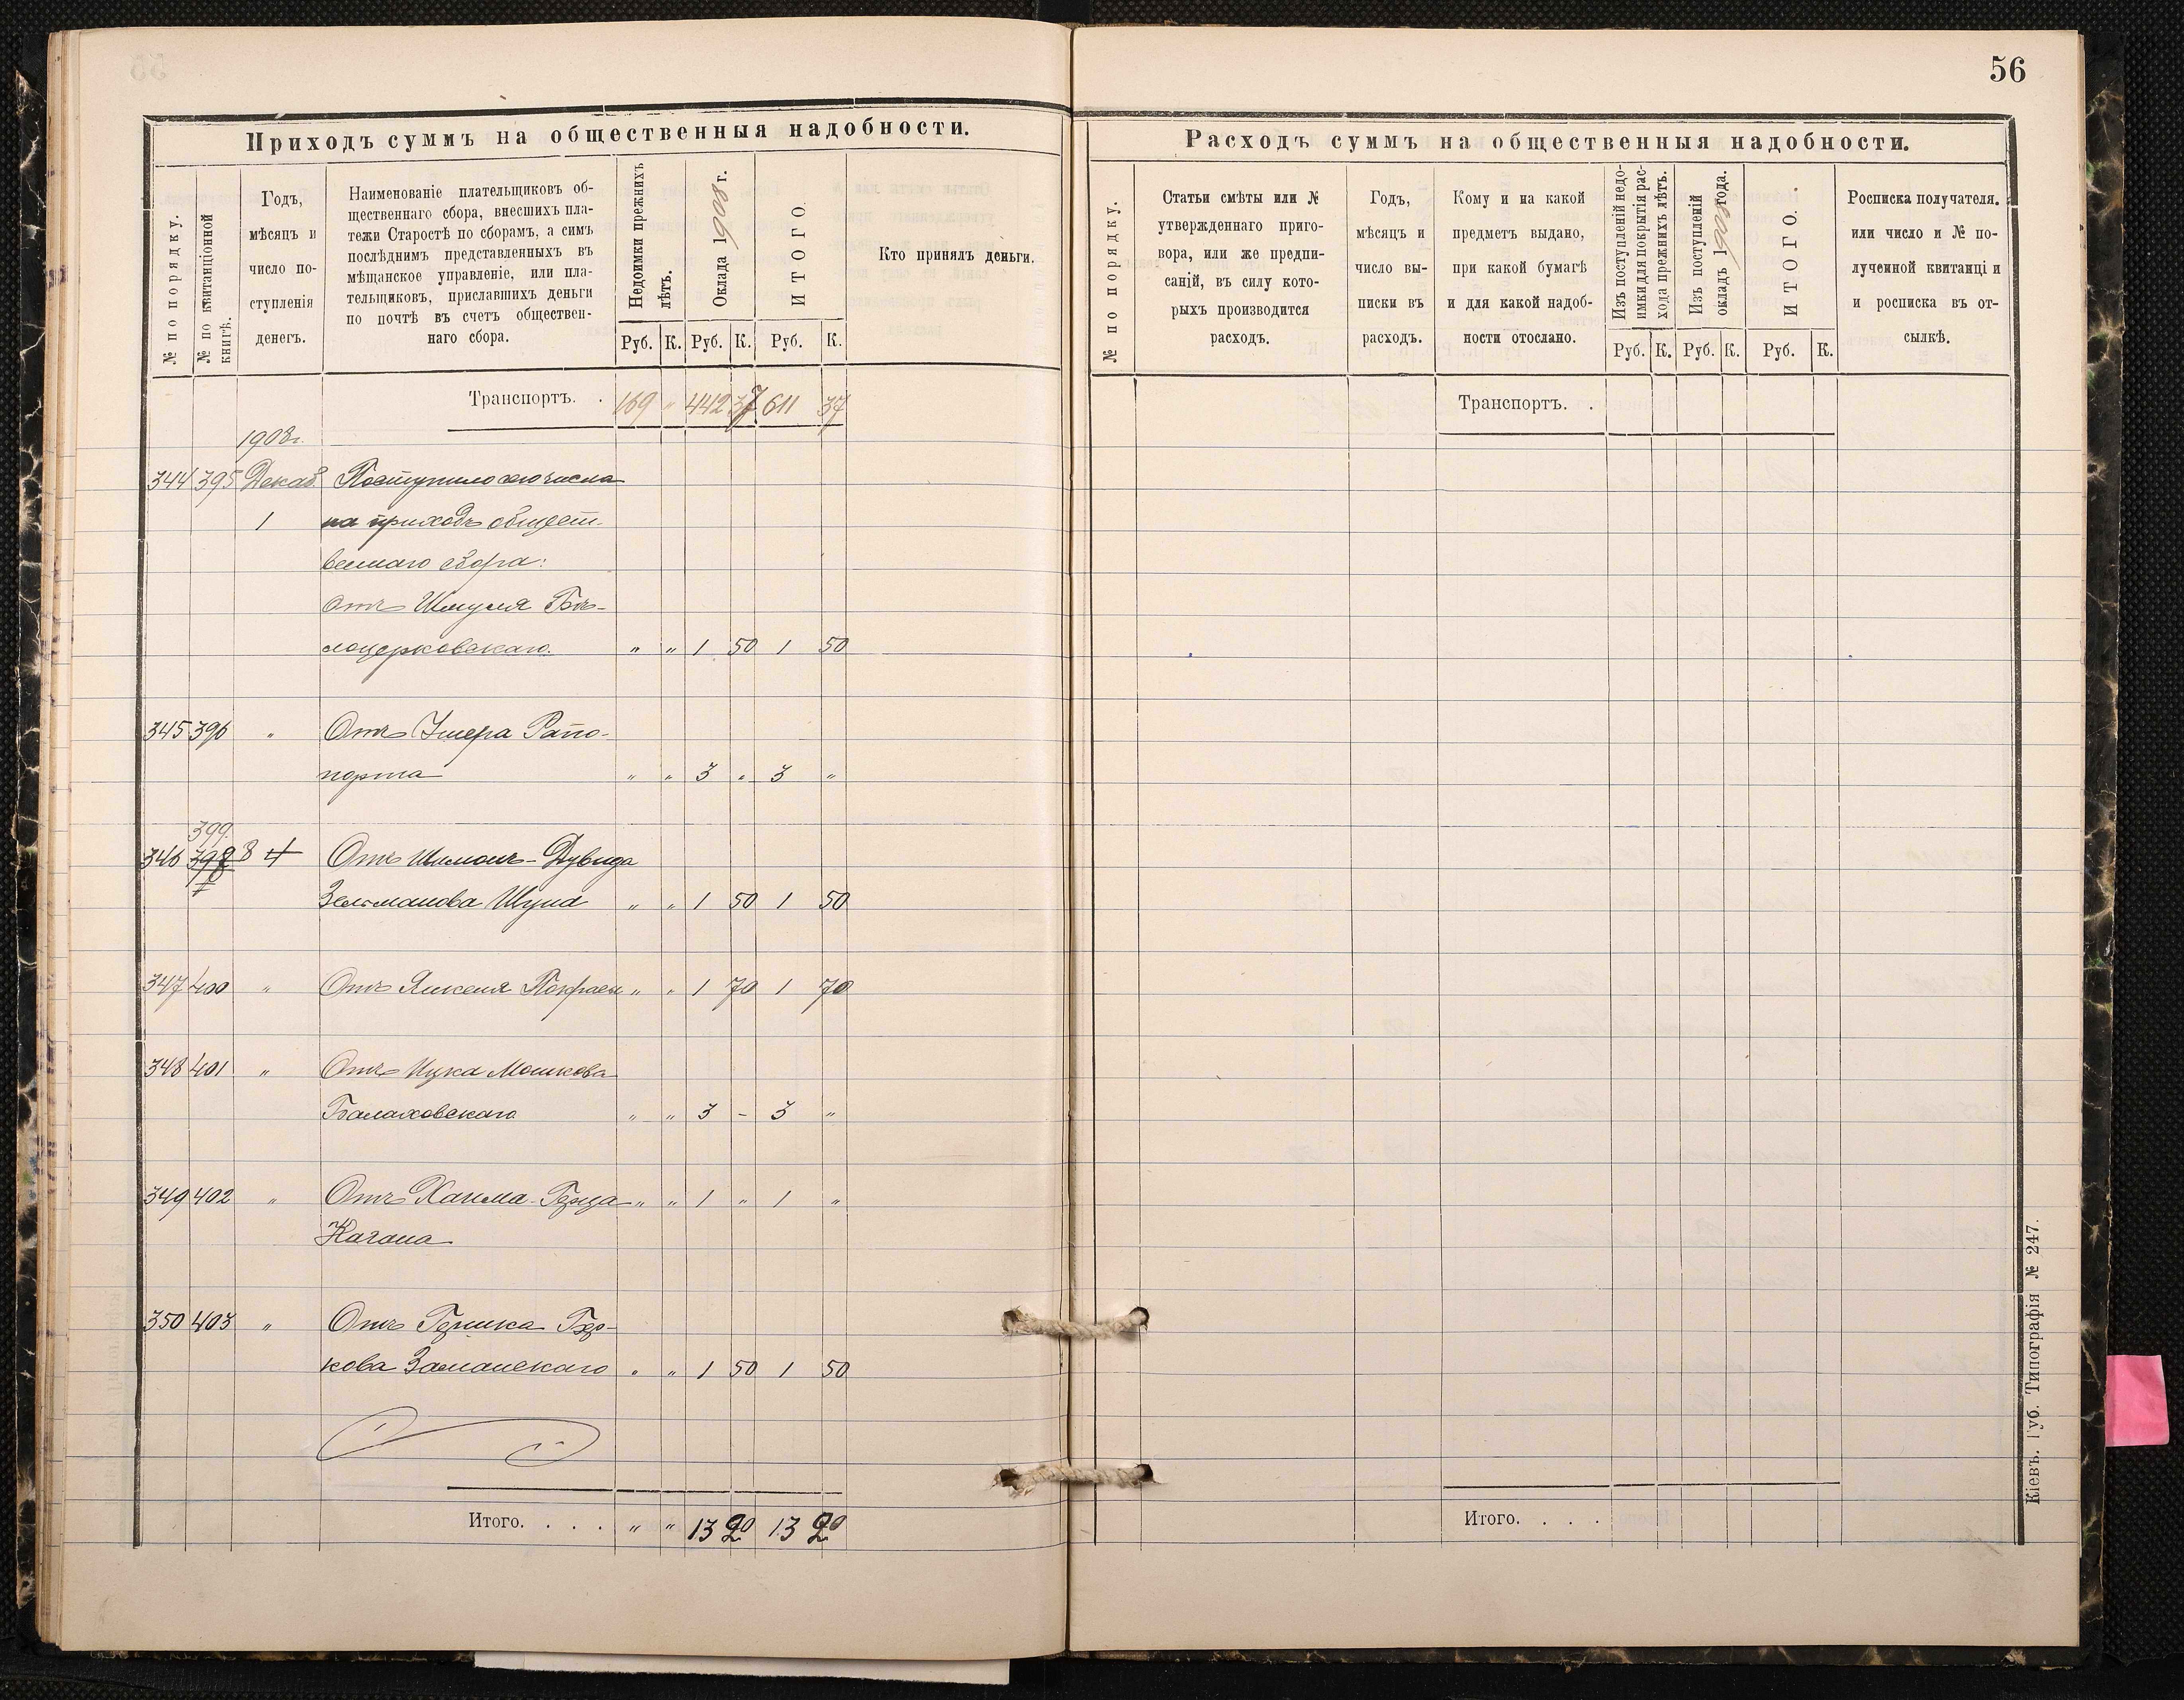 56
Приходъ суммъ на общественныя надобности.
№ по порядку.
№ по квитанціонной
книгѣ.
Годъ,
мѣсяцъ и
число по-
ступленія
денегъ.
Наименованіе плательщиковъ об-
щественнаго сбора, внесшихъ пла-
тежи Старостѣ по сборамъ, а симъ
послѣднимъ представленныхъ въ
мѣщанское управленіе, или пла-
тельщиковъ, приславшихъ деньги
по почтѣ въ счетъ обществен-
наго сбора.
Недоимки прежнихъ
лѣтъ.
Оклада 1908 г.
ИТОГО.
Руб. К. Руб. К. Руб. К.
Кто принялъ деньги.
Транспортъ. . 169 " 442 37 611 37
1908г.
344 395 Декаб. Поступило сего числа
1 на приходъ общест-
веннаго сбора:
Отъ Шмуля Бѣ-
лоцерковскаго. " " 1 50 1 50
345 396 " Отъ Ушера Рапо-
порта " " 3 " 3 "
399.
346 398 8 4 Отъ Шимонъ-Дувида
Зельманова Шуна " " 1 50 1 50
347 400 " Отъ Янкеля Покрасы " " 1 70 1 70
348 401 " Отъ Ицка Мошкова
Балаховскаго " " 3 - 3 "
349 402 " Отъ Хаима-Герца " " 1 " 1 "
Кагана
350 403 " Отъ Гершка Бер-
кова Заманскаго " " 1 50 1 50
Итого. . . . " " 13 20 13 20
Расходъ суммъ на общественныя надобности.
№ по порядку.
Статьи смѣты или №
утвержденнаго приго-
вора, или же предпи-
саній, въ силу кото-
рыхъ производится
расходъ.
Годъ,
мѣсяцъ и
число вы-
писки въ
расходъ.
Кому и на какой
предметъ выдано,
при какой бумагѣ
и для какой надоб-
ности отослано.
Изъ поступленій недо-
имки для покрытія рас-
хода прежнихъ лѣтъ.
Изъ поступленій
окладъ 1908 года.
ИТОГО.
Руб. К. Руб. К. Руб. К.
Росписка получателя.
или число и № по-
лученной квитанці и
и росписка въ от-
сылкѣ.
Транспортъ. .
Итого. . . .
Кіевъ. Губ. Типографія № 247.